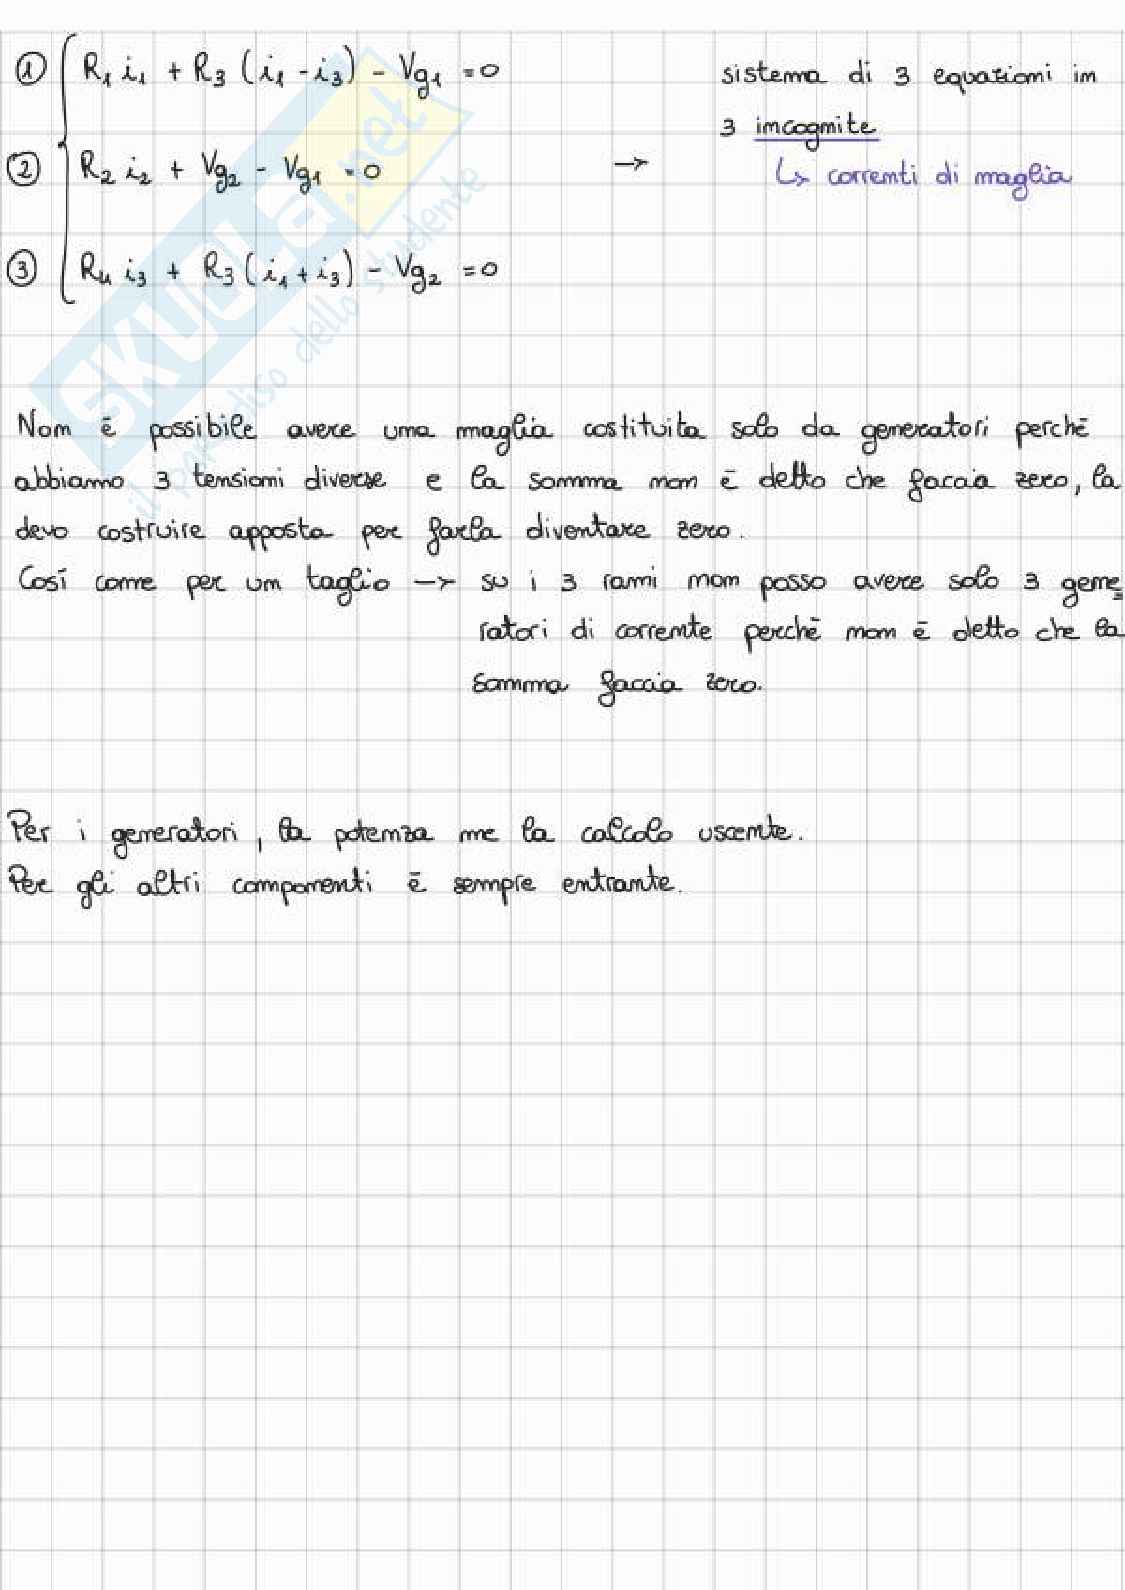 ① R₁ i₁ + R₃ (i₁ - i₃) - Vg₁ = 0
② R₂ i₂ + Vg₂ - Vg₁ = 0
③ R₄ i₃ + R₃ (i₁ + i₃) - Vg₂ = 0
→ sistema di 3 equazioni in
3 incognite
↳ correnti di maglia
Non è possibile avere una maglia costituita solo da generatori perchè
abbiamo 3 tensioni diverse e la somma non è detto che faccia zero, la
devo costruire apposta per farla diventare zero.
Così come per un taglio → su i 3 rami non posso avere solo 3 gene
ratori di corrente perchè non è detto che la
somma faccia zero.
Per i generatori, la potenza me la calcolo uscente.
Per gli altri componenti è sempre entrante.
SKUOLA.net
il paradiso dello studente